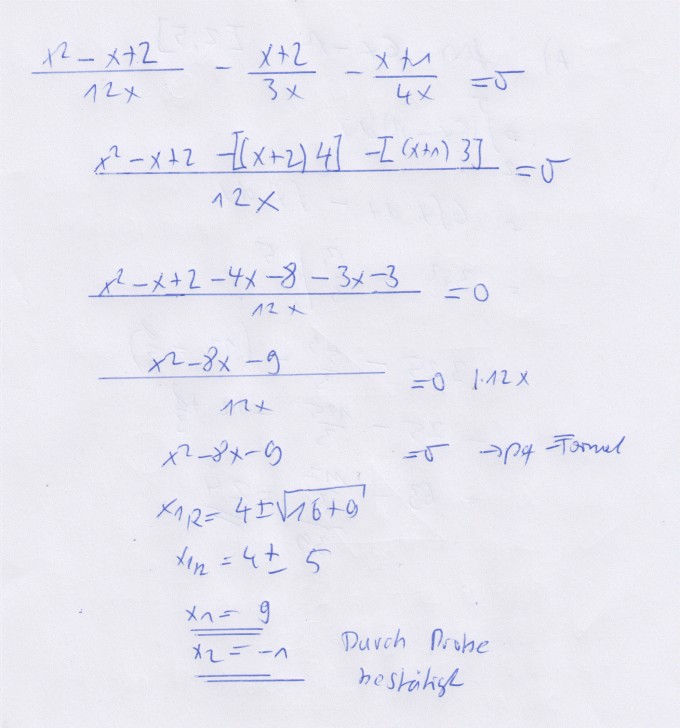 x² - x+2 / 12x - x+2 / 3x - x+1 / 4x = 0
x² - x+2 -[(x+2) 4] -[(x+1) 3] / 12x = 0
x² - x+2 - 4x - 8 - 3x - 3 / 12x = 0
x² - 8x - 9 / 12x = 0 |·12x
x² - 8x - 9 = 0 → pq-Formel
x1,2 = 4 ± √16+9
x1,2 = 4 ± 5
x1 = 9
x2 = -1 Durch Probe
bestätigt